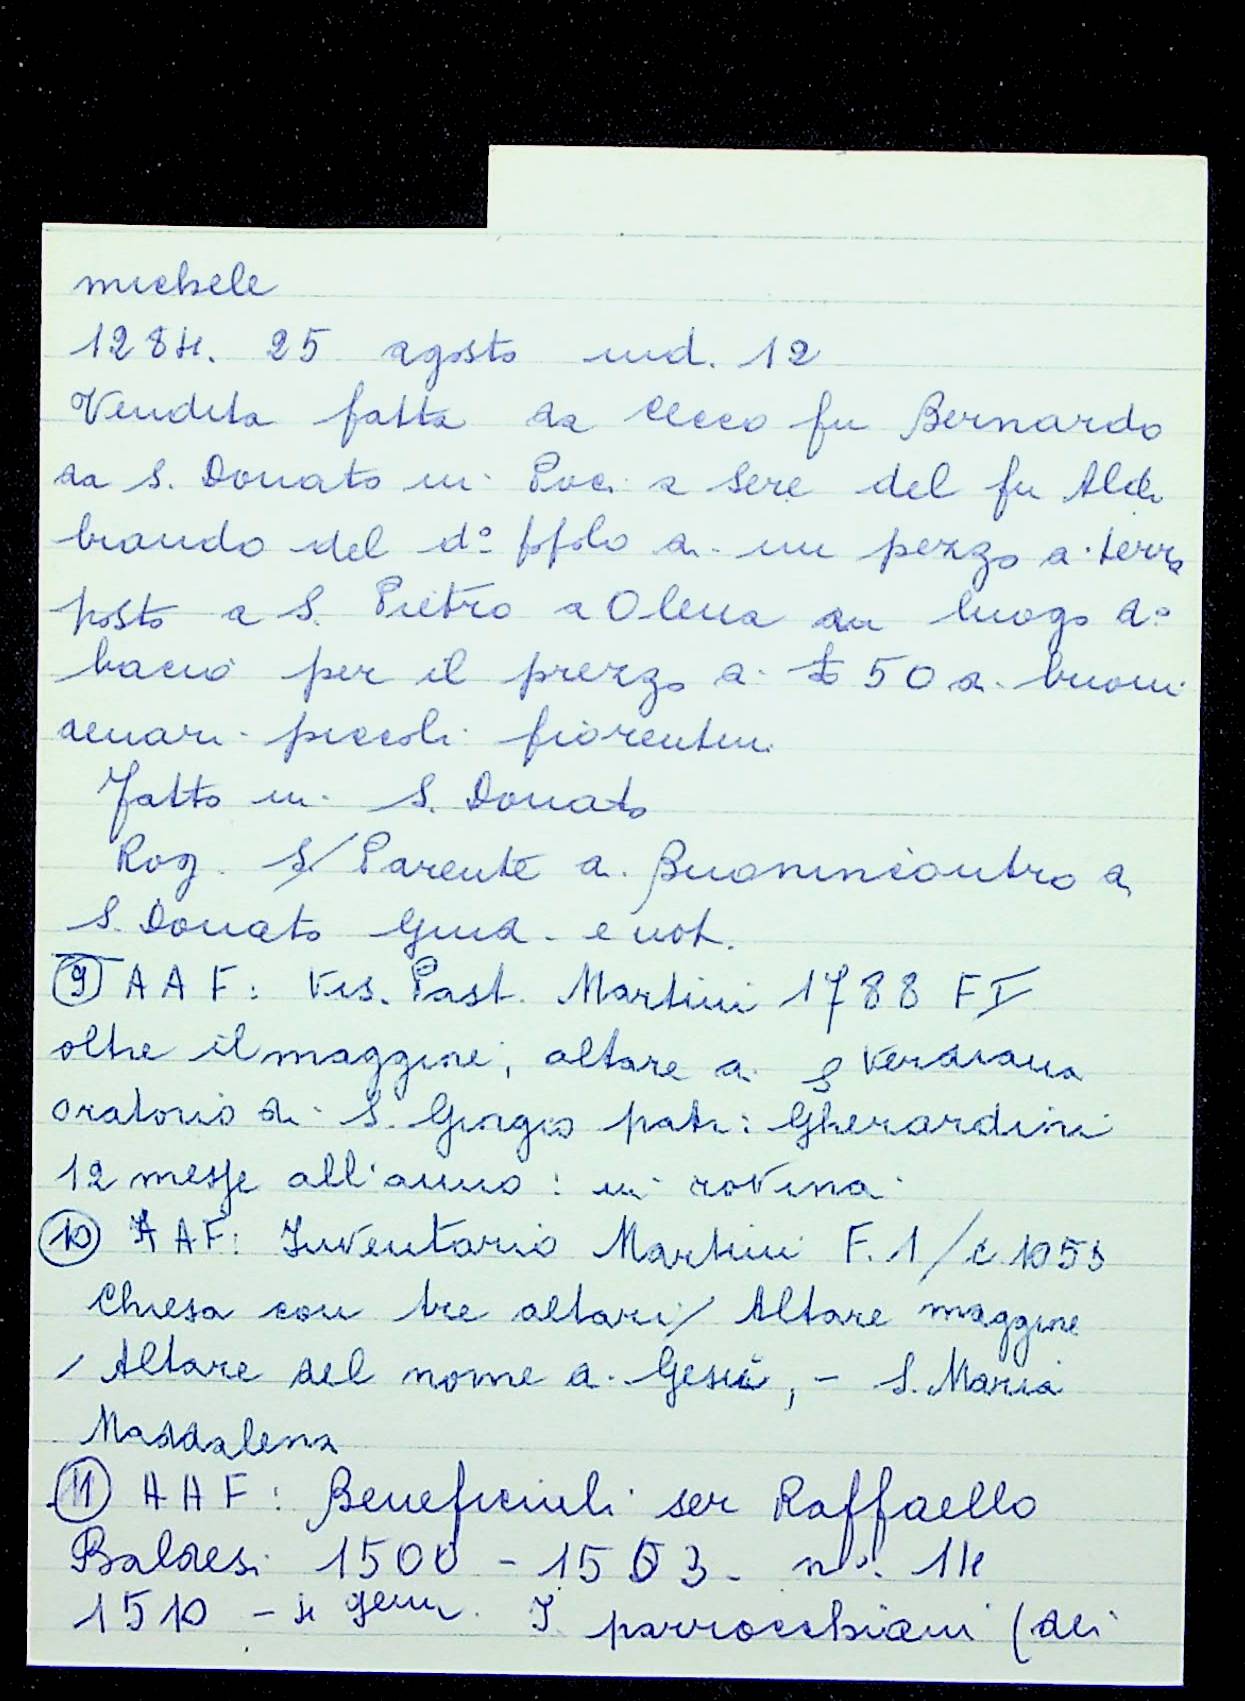 michele
1284. 25 agosto ind. 12
Vendita fatta da Cecco fu Bernardo
da S. Donato in Poci a Sere del fu Aldi
brando del d.º popolo di un pezzo di terra
posto a S. Pietro a Olena in luogo d.º
bacìo per il prezzo di £ 50 di buoni
denari piccoli fiorentini
Fatto in S. Donato
Rog. S/ Parente di Buonincontro di
S. Donato Giud. e not.
9 A A F: Vis. Past. Martini 1788 F I
oltre il maggiore, altare di S Verdiana
oratorio di S. Giorgio patr: Gherardini
12 messe all'anno: in rovina
10 A A F: Inventario Martini F. 1/c 1053
Chiesa con tre altari/ Altare maggiore
/ Altare del nome di Gesù, - S. Maria
Maddalena
11 A A F: Beneficiali ser Raffaello
Baldesi 1500 - 1503. n.º 14
1510 - 4 genn. I parrocchiani (dei